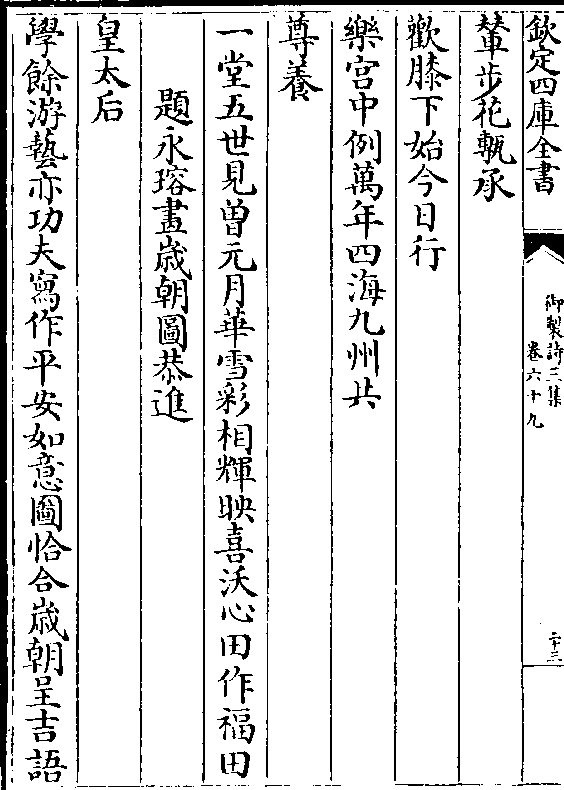 欽定四庫全書
御製詩三集
卷六十九
二十三
輦步花甎承
歡膝下始今日行
樂宫中例萬年四海九州共
尊養
一堂五世見曽元月華雪彩相輝映喜沃心田作福田
題永瑢畫歲朝圖恭進
皇太后
學餘游藝亦功夫寫作平安如意圖恰合歲朝呈吉語